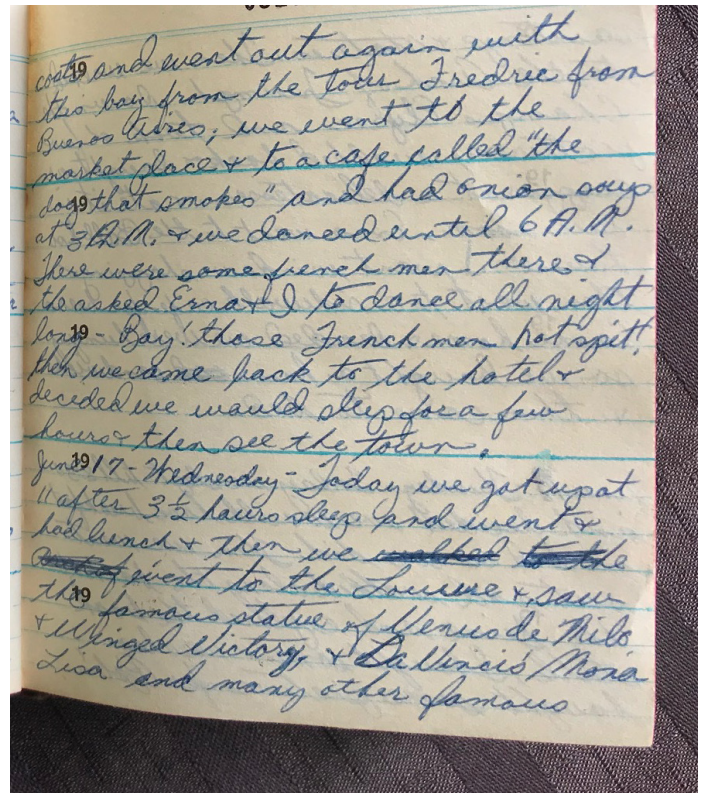 coats and went out again with
this boy from the tour Fredric from
Buenos Aires; we went to the
market place & to a cafe called "the
dog that smokes" and had onion soup
at 3 A.M. & we danced until 6 A.M.
There were some french men there &
the asked Erna & I to dance all night
long - Boy! those Frenchmen hot spit!
then we came back to the hotel &
decided we would sleep for a few
hours & then see the town.
June 17 - Wednesday - Today we got up at
11 after 3 1/2 hours sleep and went &
had lunch & then we walked to the
went to the Louvre & saw
the famous statue of Venus de Milo
& Winged Victory, & Da Vinci's Mona
Lisa and many other famous